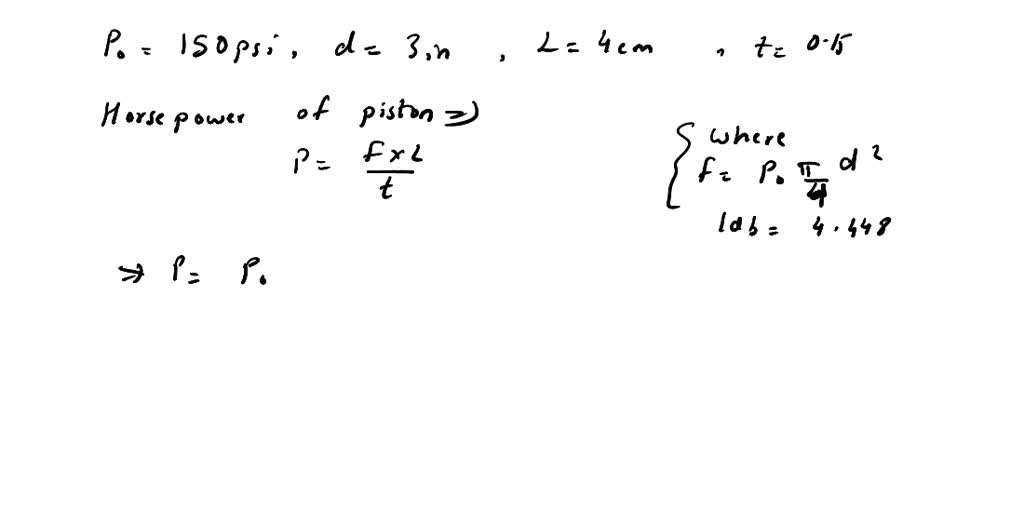 P₀ = 150 psi, d = 3 in, L = 4 cm, t = 0.15
Horse power of piston ⇒
P = f x L / t
{ where
f = P₀ π/4 d²
1db = 4.448
⇒ P = P₀